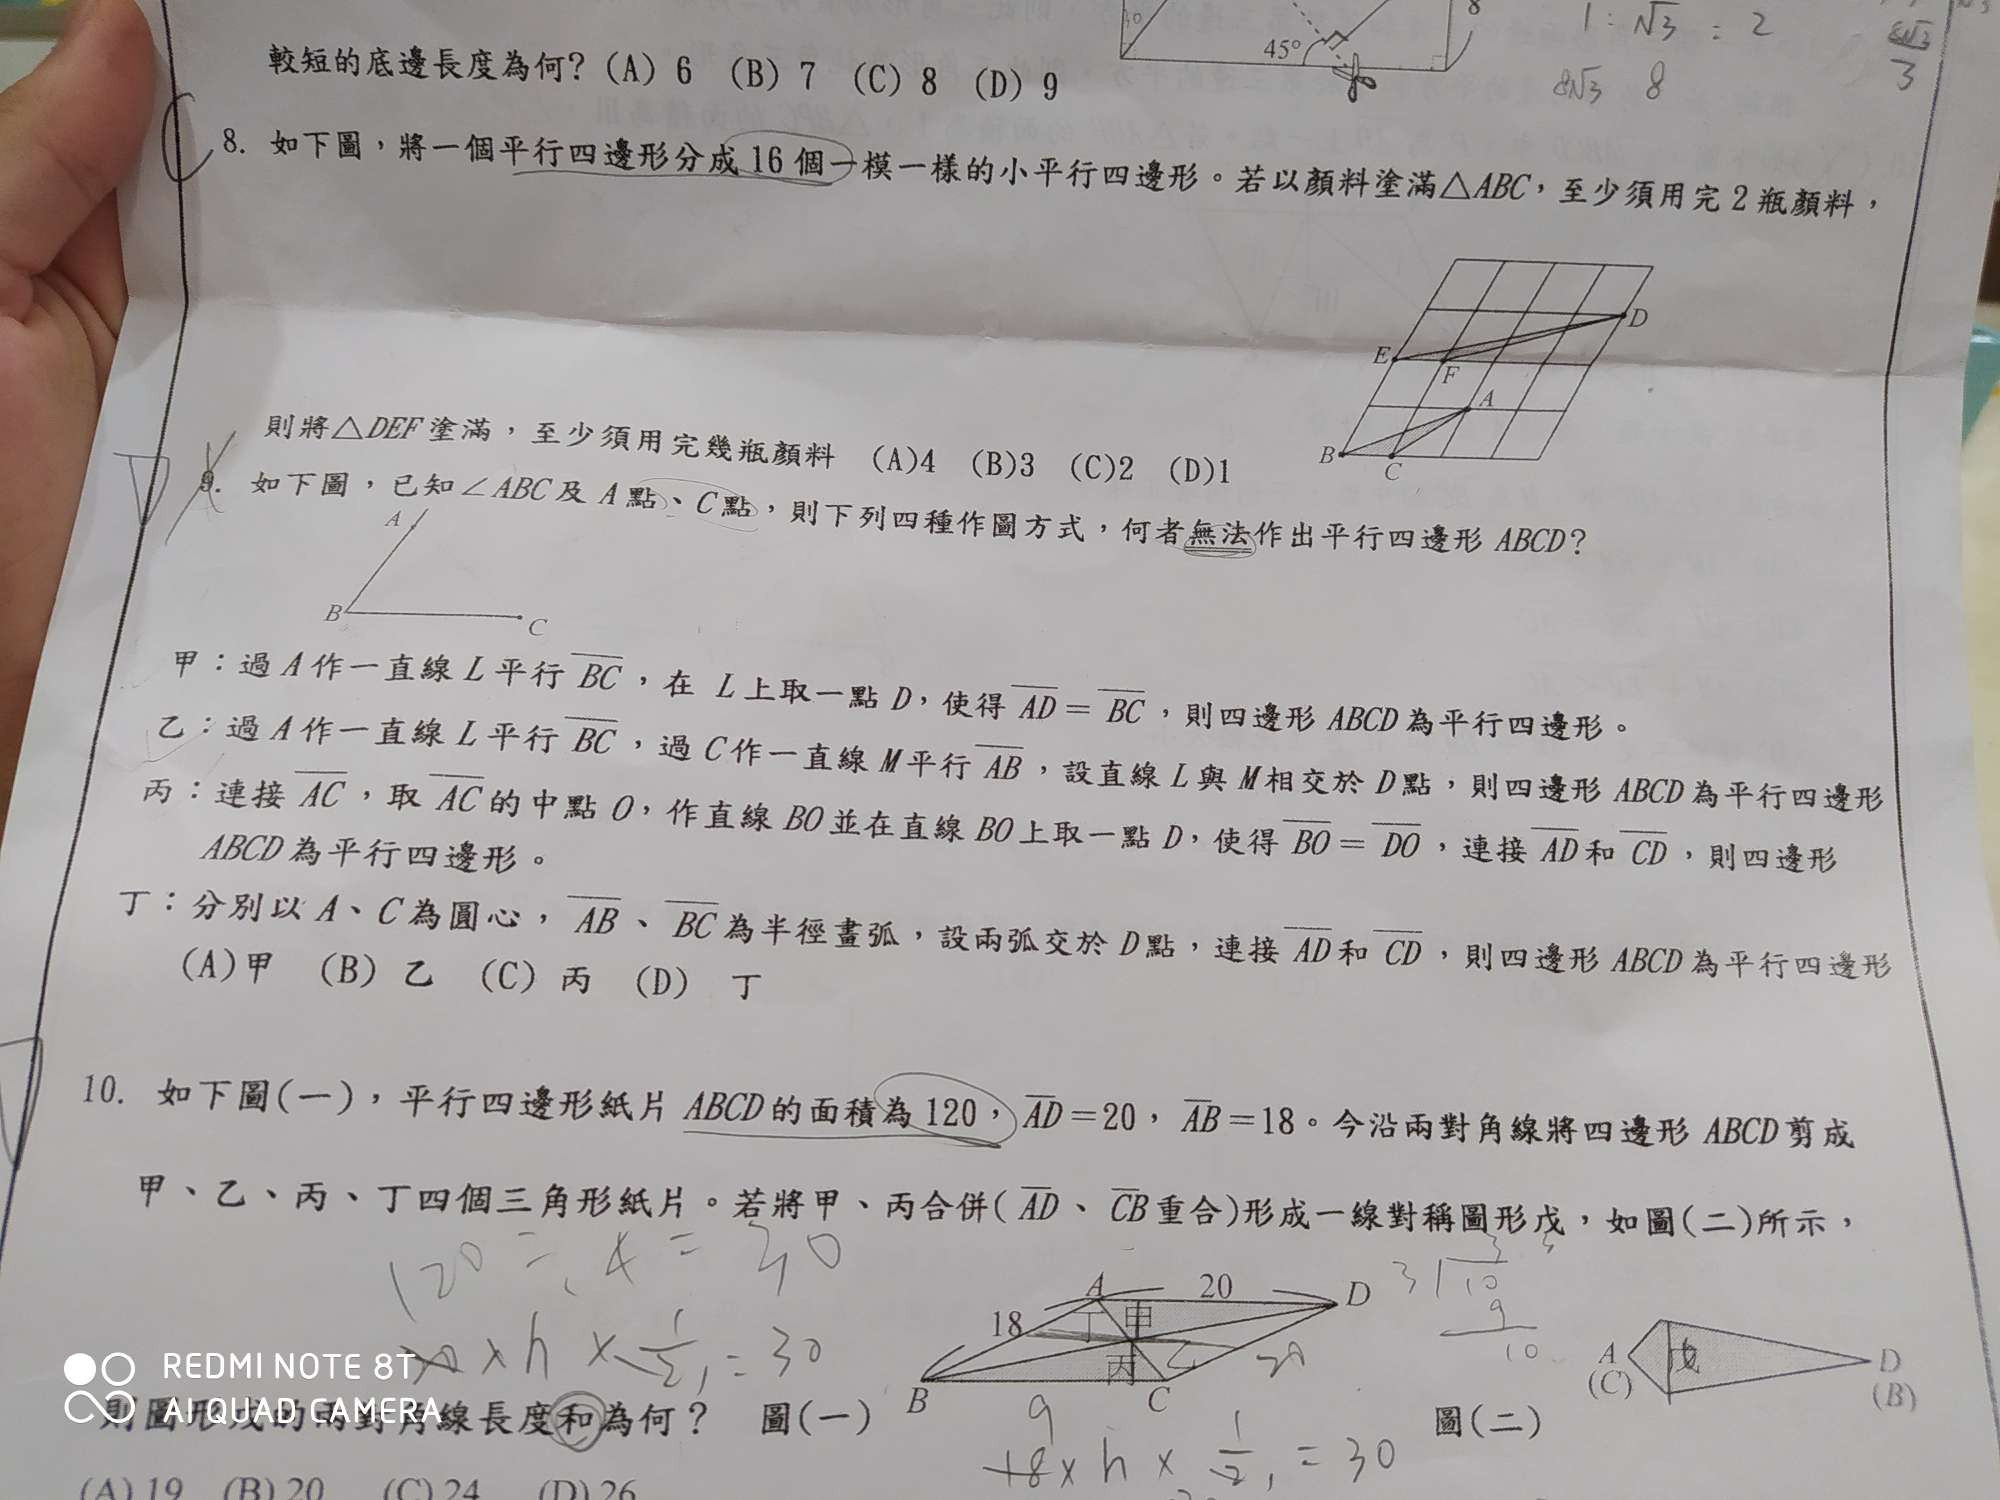 30
45°
8
1 : √3 : 2
8√3 8
8√3
3
較短的底邊長度為何? (A) 6 (B) 7 (C) 8 (D) 9
8. 如下圖，將一個平行四邊形分成16個一模一樣的小平行四邊形。若以顏料塗滿△ABC，至少須用完2瓶顏料，
D
E
F
A
B
C
則將△DEF塗滿，至少須用完幾瓶顏料 (A)4 (B)3 (C)2 (D)1
9. 如下圖，已知∠ABC及A點、C點，則下列四種作圖方式，何者無法作出平行四邊形ABCD?
A
B
C
甲：過A作一直線L平行BC，在 L上取一點D，使得AD＝BC，則四邊形ABCD為平行四邊形。
乙：過A作一直線L平行BC，過C作一直線M平行AB，設直線L與M相交於D點，則四邊形ABCD為平行四邊形
丙：連接AC，取AC的中點O，作直線BO並在直線BO上取一點D，使得BO＝DO，連接AD和CD，則四邊形
ABCD為平行四邊形。
丁：分別以A、C為圓心，AB、BC為半徑畫弧，設兩弧交於D點，連接AD和CD，則四邊形ABCD為平行四邊形
(A)甲 (B) 乙 (C) 丙 (D) 丁
10. 如下圖(一)，平行四邊形紙片ABCD的面積為120，AD＝20，AB＝18。今沿兩對角線將四邊形ABCD剪成
甲、乙、丙、丁四個三角形紙片。若將甲、丙合併(AD、CB重合)形成一線對稱圖形戊，如圖(二)所示，
120÷4=30
×h×1/2=30
A 20 D
18 丁 甲
丙 乙
B C
3 10
9
10
A
(C)
戊
D
(B)
REDMI NOTE 8T
AI QUAD CAMERA
則圖形戊的兩對角線長度和為何? 圖(一) 圖(二)
9
18×h×1/2=30
(A) 19 (B) 20 (C) 24 (D) 26